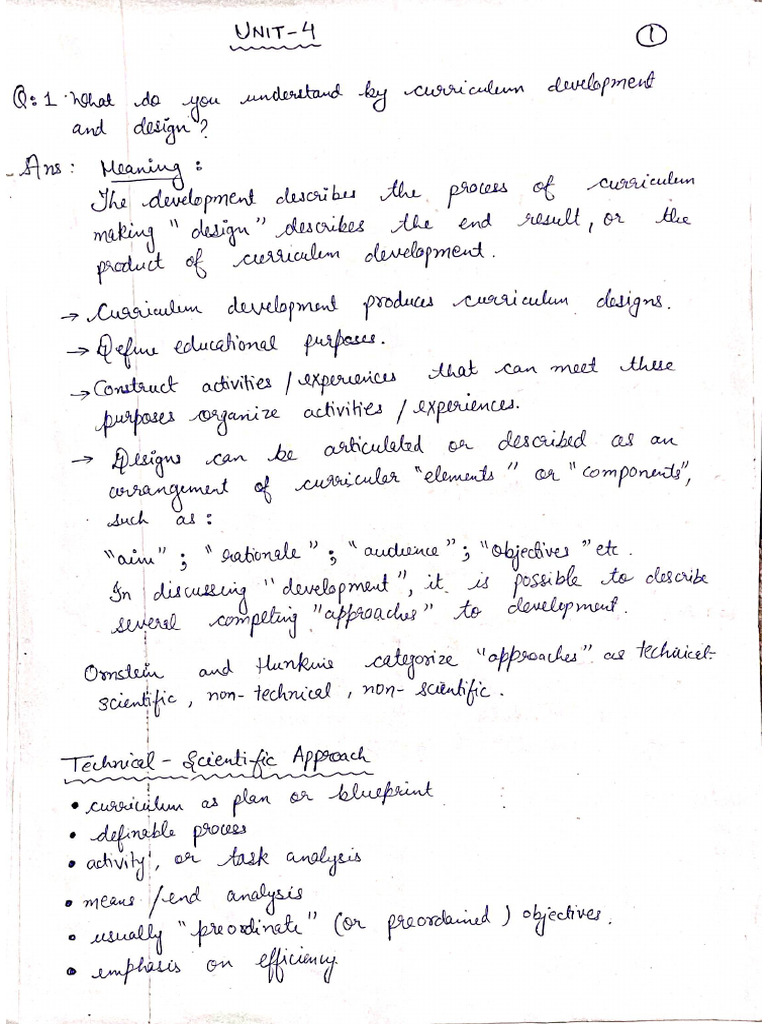 UNIT-4
1
Q:1 What do you understand by curriculum development
and design?
Ans: Meaning:
The development describes the process of curriculum
making "design" describes the end result, or the
product of curriculum development.
→ Curriculum development produces curriculum designs.
→ Define educational purposes.
→ Construct activities / experiences that can meet these
purposes organize activities / experiences.
→ Designs can be articulated or described as an
arrangement of curricular "elements" or "components",
such as:
"aim"; "rationale"; "audience"; "objectives" etc.
In discussing "development", it is possible to describe
several competing "approaches" to development.
Ornstein and Hunkins categorize "approaches" as techaical-
scientific, non-technical, non-scientific.
Technical - Scientific Approach
• curriculum as plan or blueprint
• definable process
• activity, or task analysis
• means / end analysis
• usually "preordinate" (or preordained) objectives.
• emphasis on efficiency